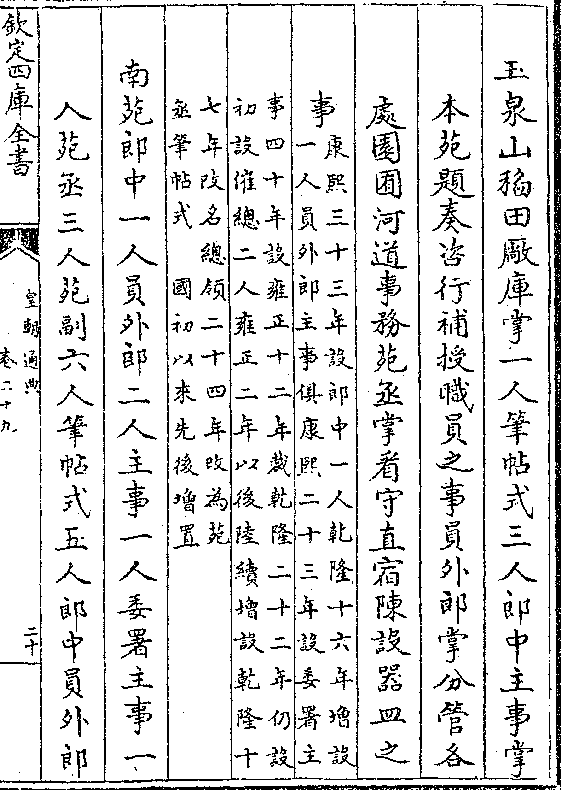 玉泉山稻田廠庫掌一人筆帖式三人郎中主事掌
本苑題奏咨行補授職員之事員外郎掌分管各
處園囿河道事務苑丞掌看守直宿陳設器皿之
事
康熙三十三年設郎中一人乾隆十六年增設
一人員外郎主事俱康熙二十三年設委署主
事四十年設雍正十二年裁乾隆二十二年仍設
初設催總二人雍正二年以後陸續增設乾隆十
七年改名總領二十四年改為苑
丞筆帖式 國初以來先後增置
南苑郎中一人員外郎二人主事一人委署主事一
人苑丞三人苑副六人筆帖式五人郎中員外郎
欽定四庫全書
皇朝通典
卷二十九
二十